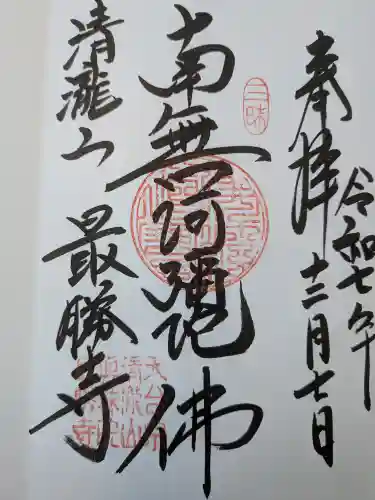 奉拝
令和七年
十二月七日
三昧
南無阿彌陀佛
清瀧山
最勝寺